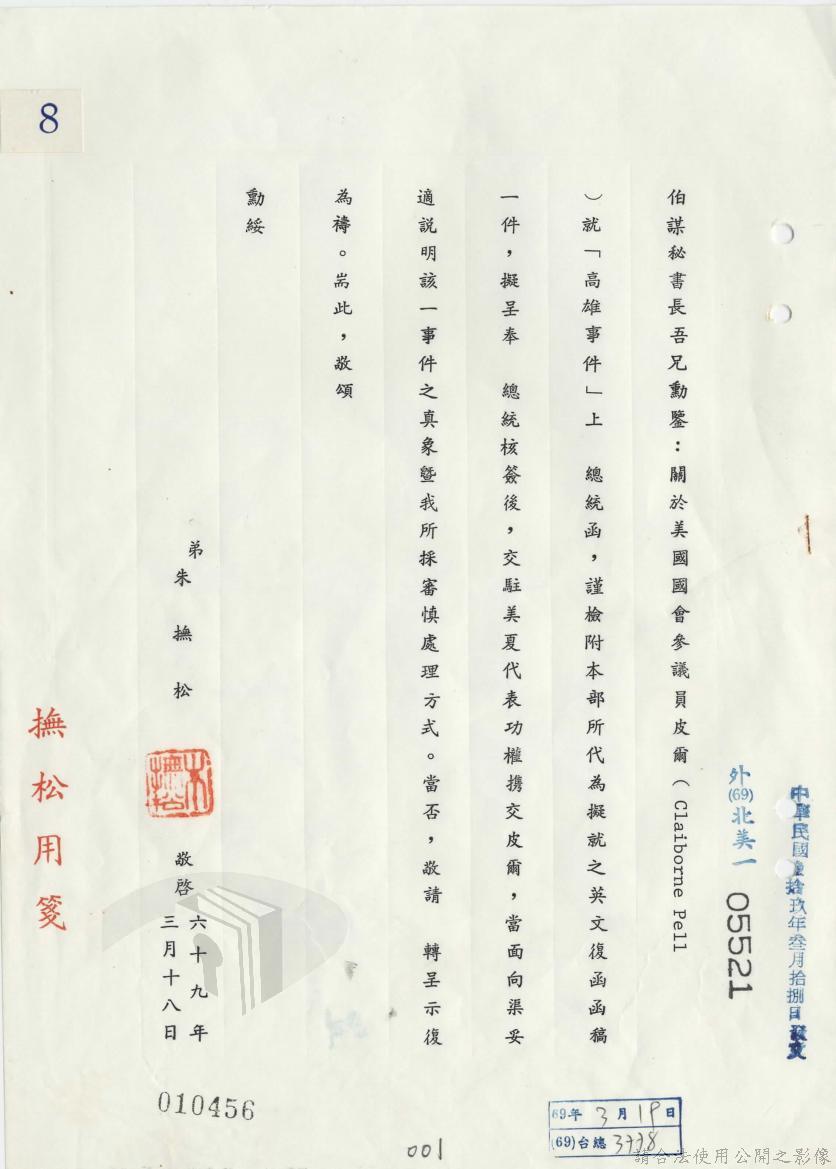 中華民國陸拾玖年叁月拾捌日發文
外(69)北美一 05521
伯謀秘書長吾兄勳鑒：關於美國國會參議員皮爾（Claiborne Pell
）就「高雄事件」上　總統函，謹檢附本部所代為擬就之英文復函函稿
一件，擬呈奉　總統核簽後，交駐美夏代表功權携交皮爾，當面向渠妥
適說明該一事件之真象暨我所採審慎處理方式。當否，敬請　轉呈示復
為禱。耑此，敬頌
勳綏
弟
朱撫松
朱撫松
敬啓
六十九年
三月十八日
撫松用箋
8
010456
001
69年3月19日
(69)台總3778
請合法使用公開之影像